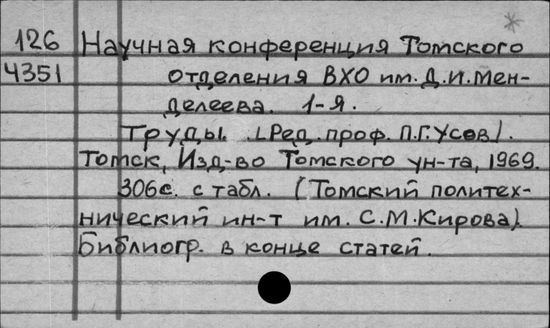 126 Научная конференция Томского
4351 отделения ВХО им. Д.И.Мен-
делеева. 1-я.
Труды. [Ред. проф. П.Г.Усов].
Томск, Изд-во Томского ун-та, 1969.
306с. с табл. (Томский политех-
нический ин-т им. С.М.Кирова).
Библиогр. в конце статей.